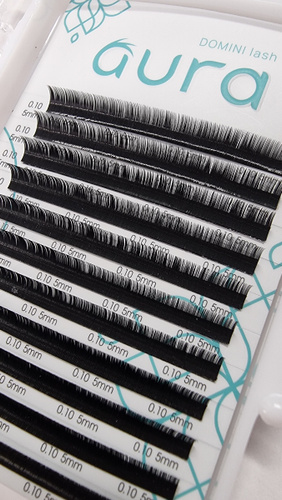 DOMINI lash
aura
0.10
5mm
0.10
5mm
0.10
5mm
0.10
5mm
0.10 5mm
0.10 5mm
0.10 5mm
0.10 5mm 0.10 5mm
0.10 5mm 0.10 5mm
0.10 5mm 0.10 5mm 0.10 5mm
0.10 5mm 0.10 5mm 0.10 5mm
0.10 5mm 0.10 5mm 0.10 5mm
0.10 5mm 0.10 5mm
0.10 5mm